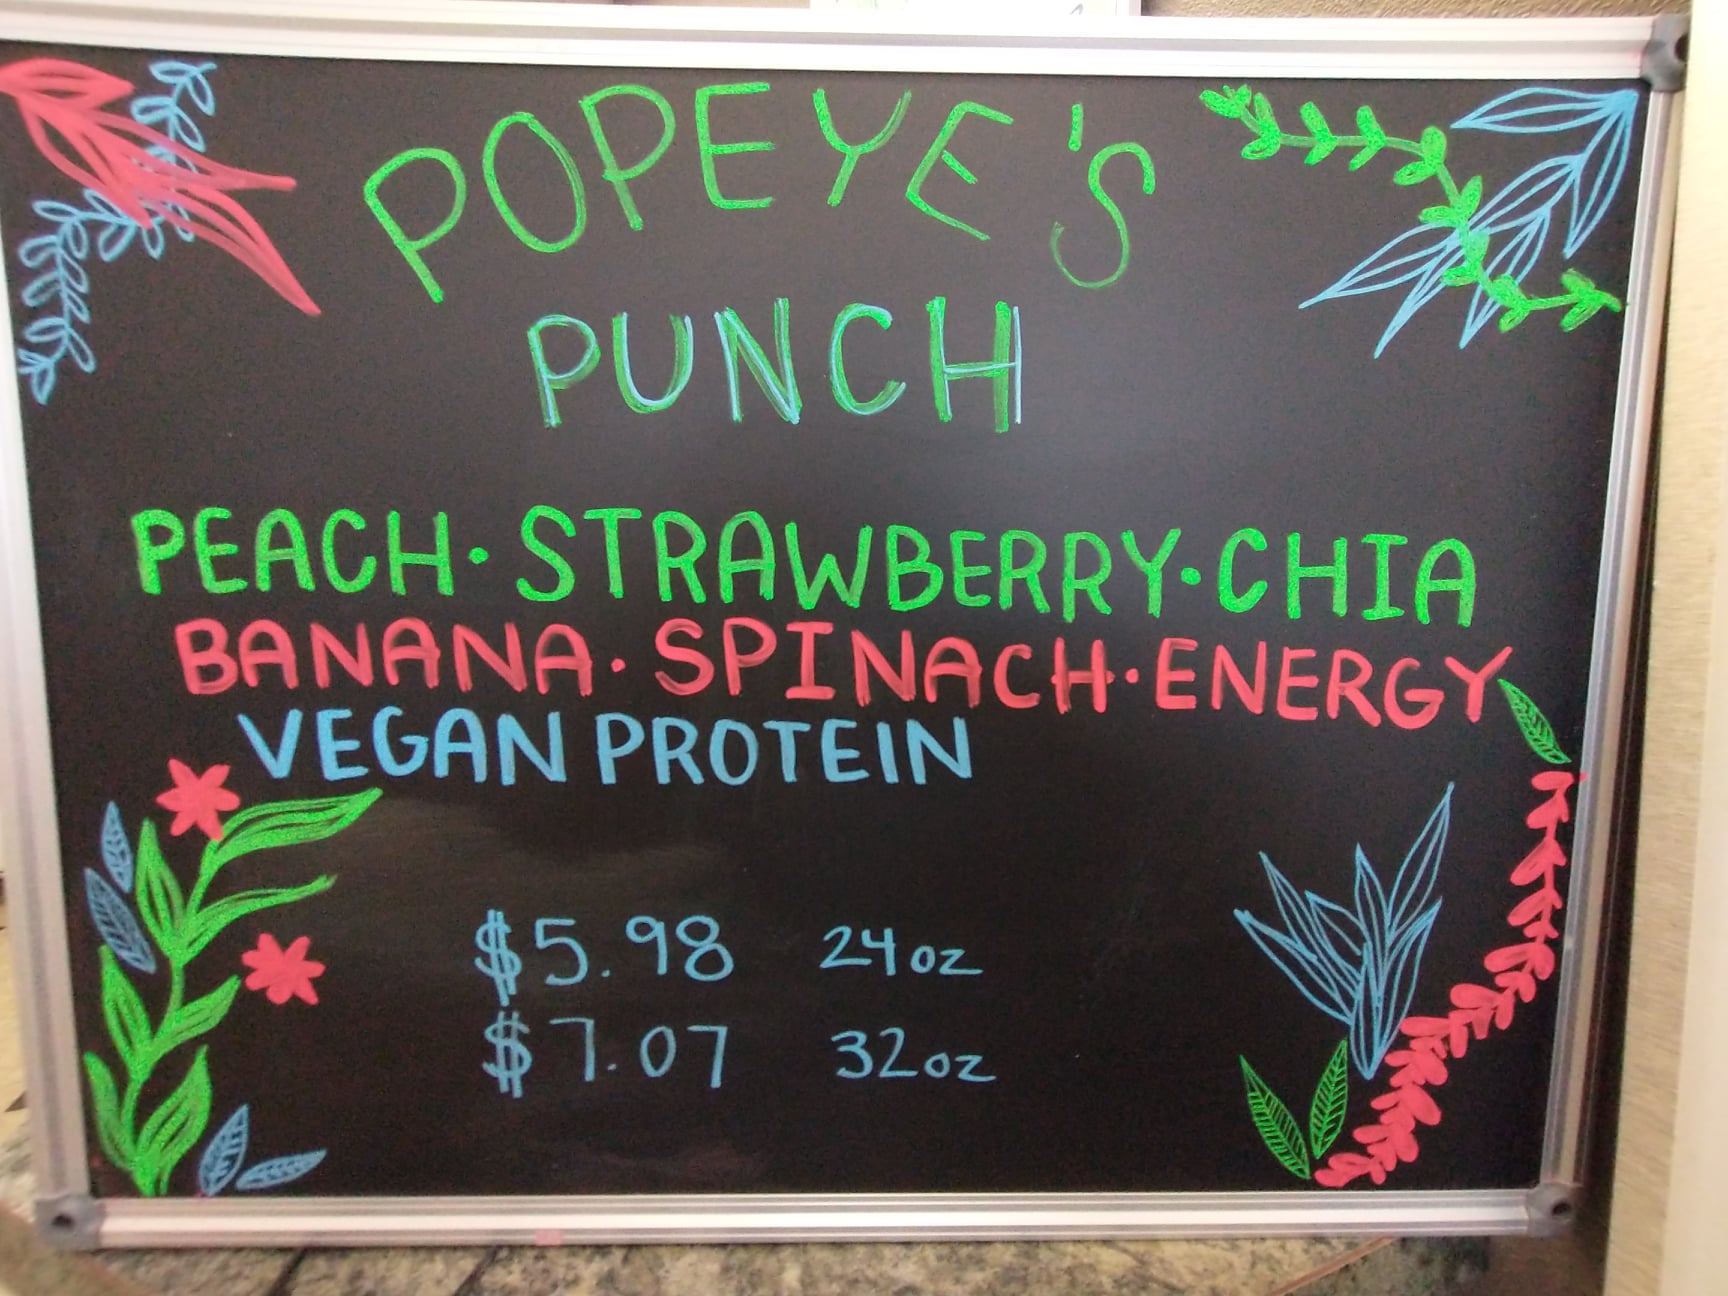 POPEYE'S
PUNCH
PEACH · STRAWBERRY · CHIA
BANANA · SPINACH · ENERGY
VEGAN PROTEIN
$5.98 24oz
$7.07 32oz